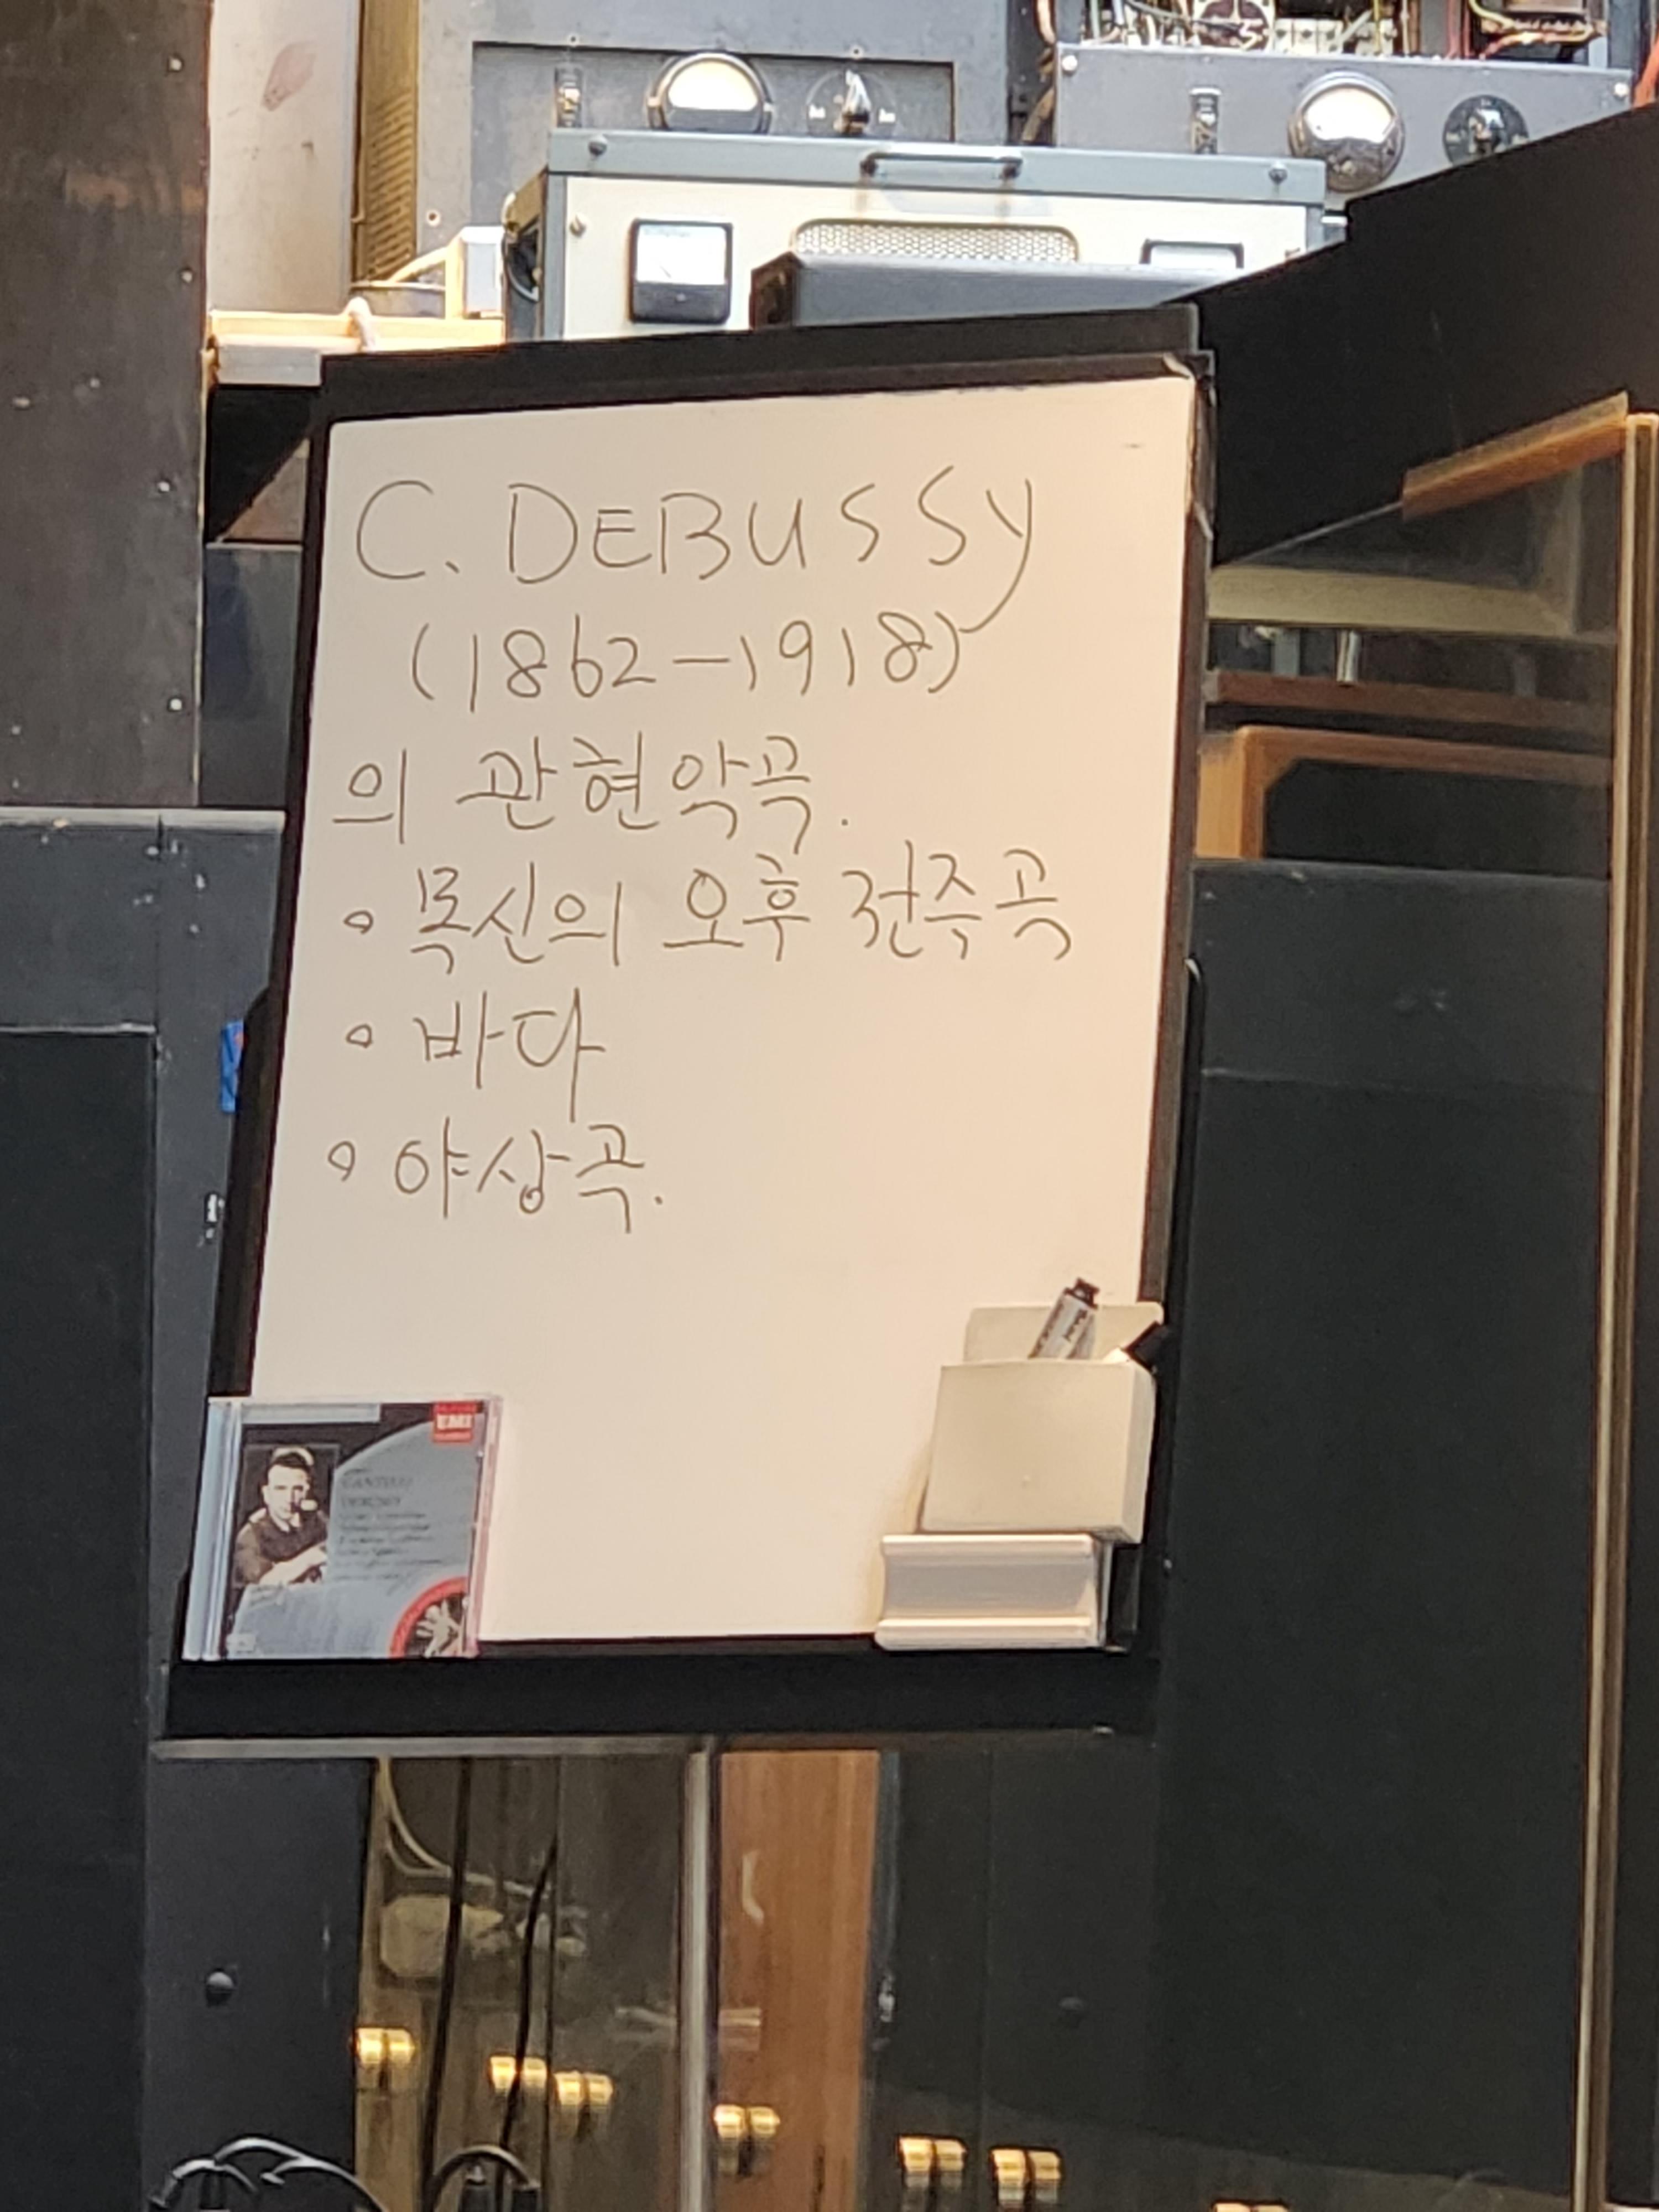 C. DEBUSSY
(1862-1918)
의 관현악곡.
◦ 목신의 오후 전주곡
◦ 바다
◦ 야상곡.
EMI